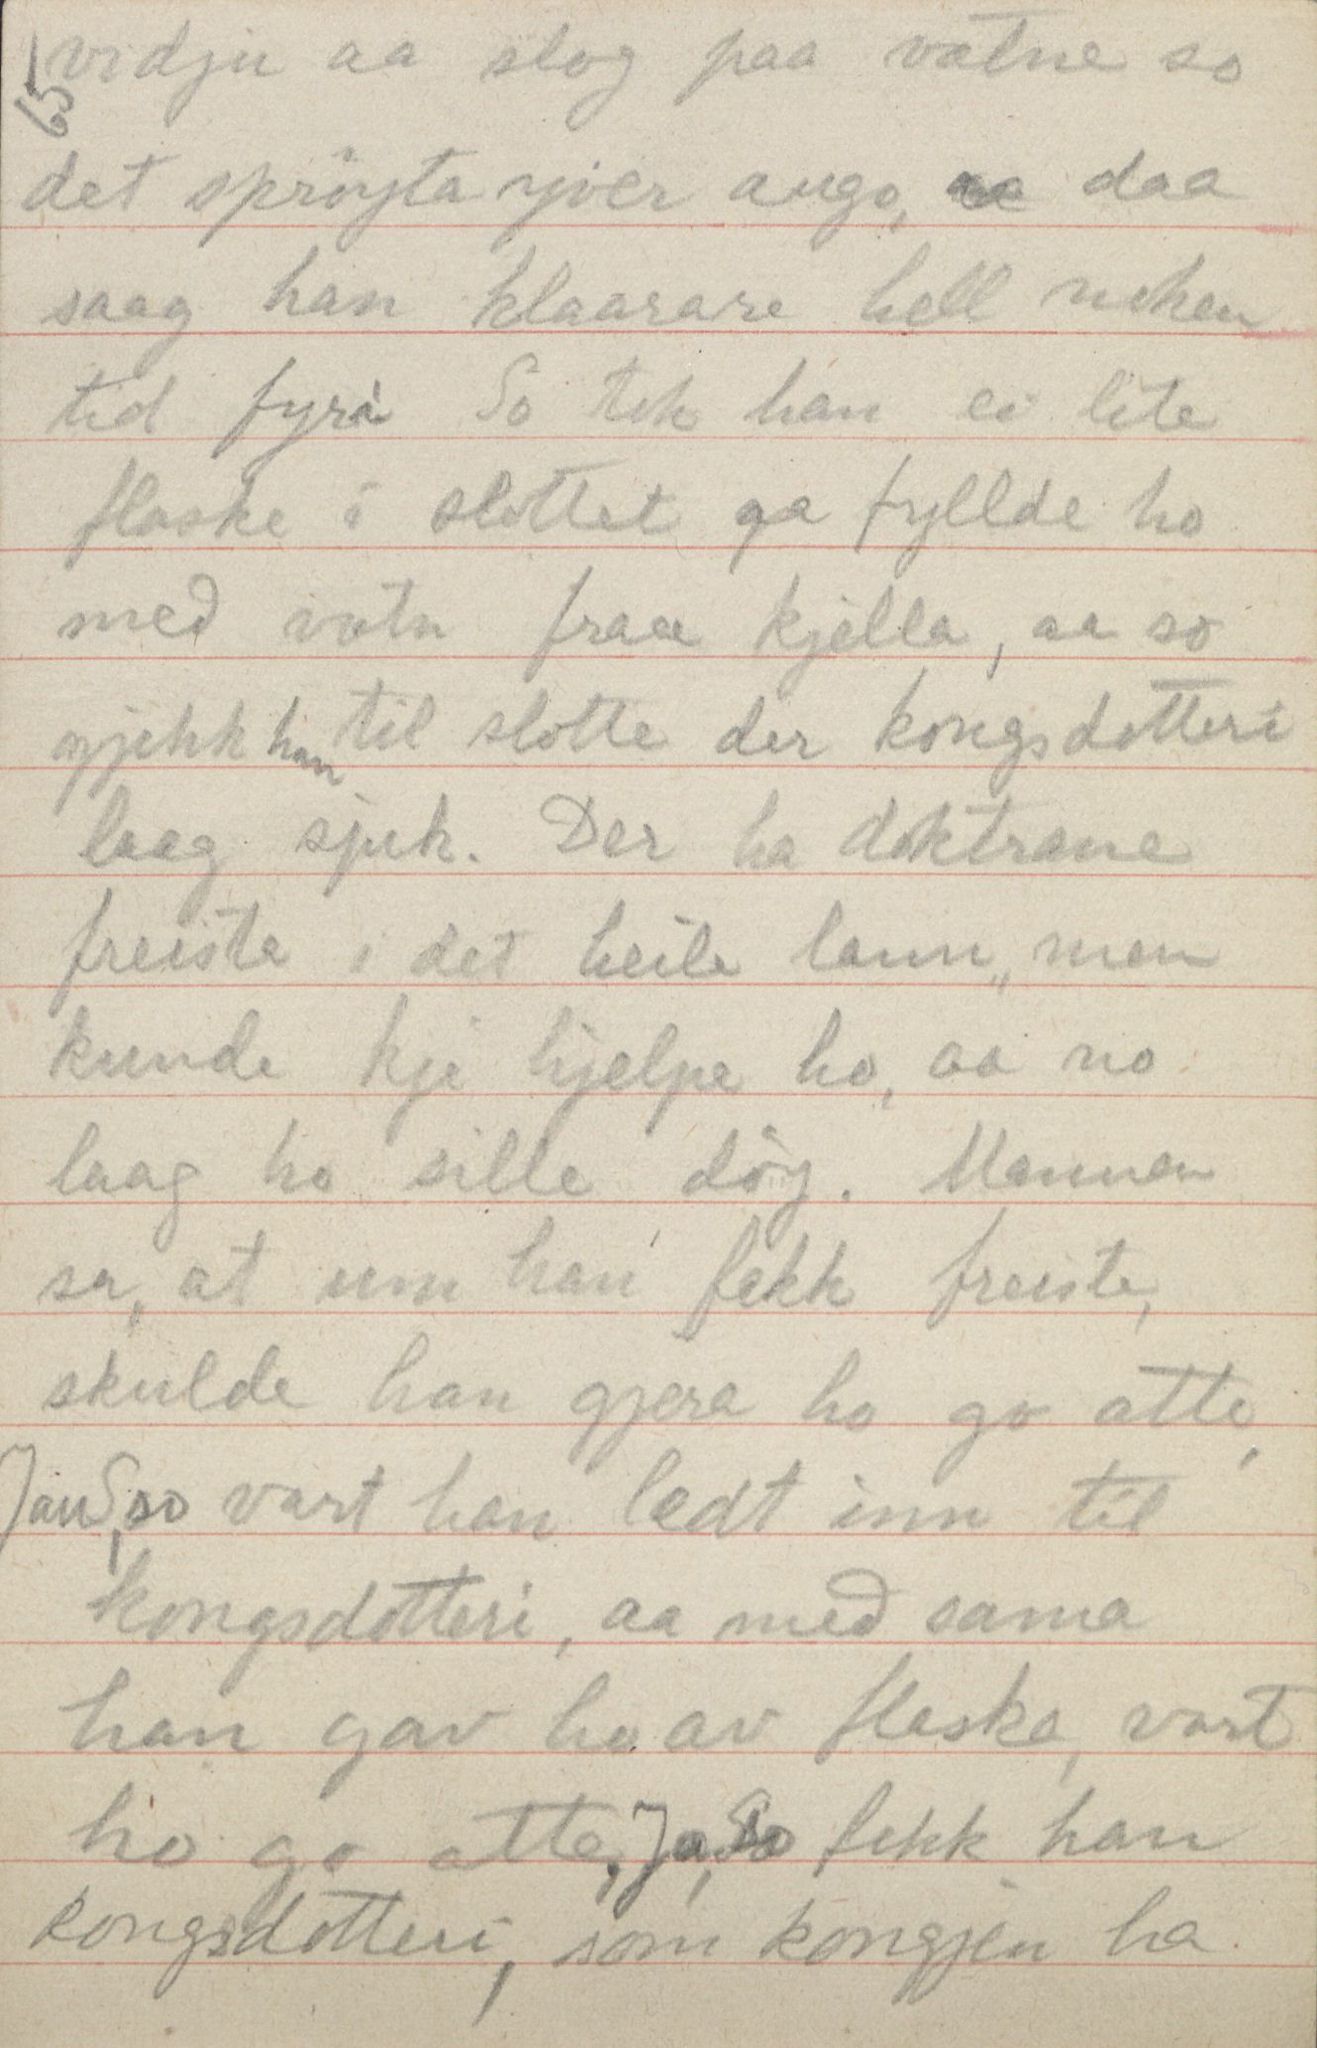 65
vidju aa slog paa vatne so
det sprøyta yver augo, aa daa
saag han klaarare hell noken
tid fyri So tok han ei lite
flaske i slottet aa fyllde ho
med vatn fraa kjella, aa so
gjekk han til slotte der kongsdotteri
laag sjuk. Der ha doktrane
freista i det heile lann, men
kunde kje hjelpe ho, aa no
laag ho sille døy. Mannen
sa, at um han fekk freiste,
skulde han gjera ho go atte,
Jau, so vart han ledt inn til
kongsdotteri, aa med sama
han gav ho av flaska, vart
ho go atte, Ja, So fekk han
kongsdotteri, som kongjen ha